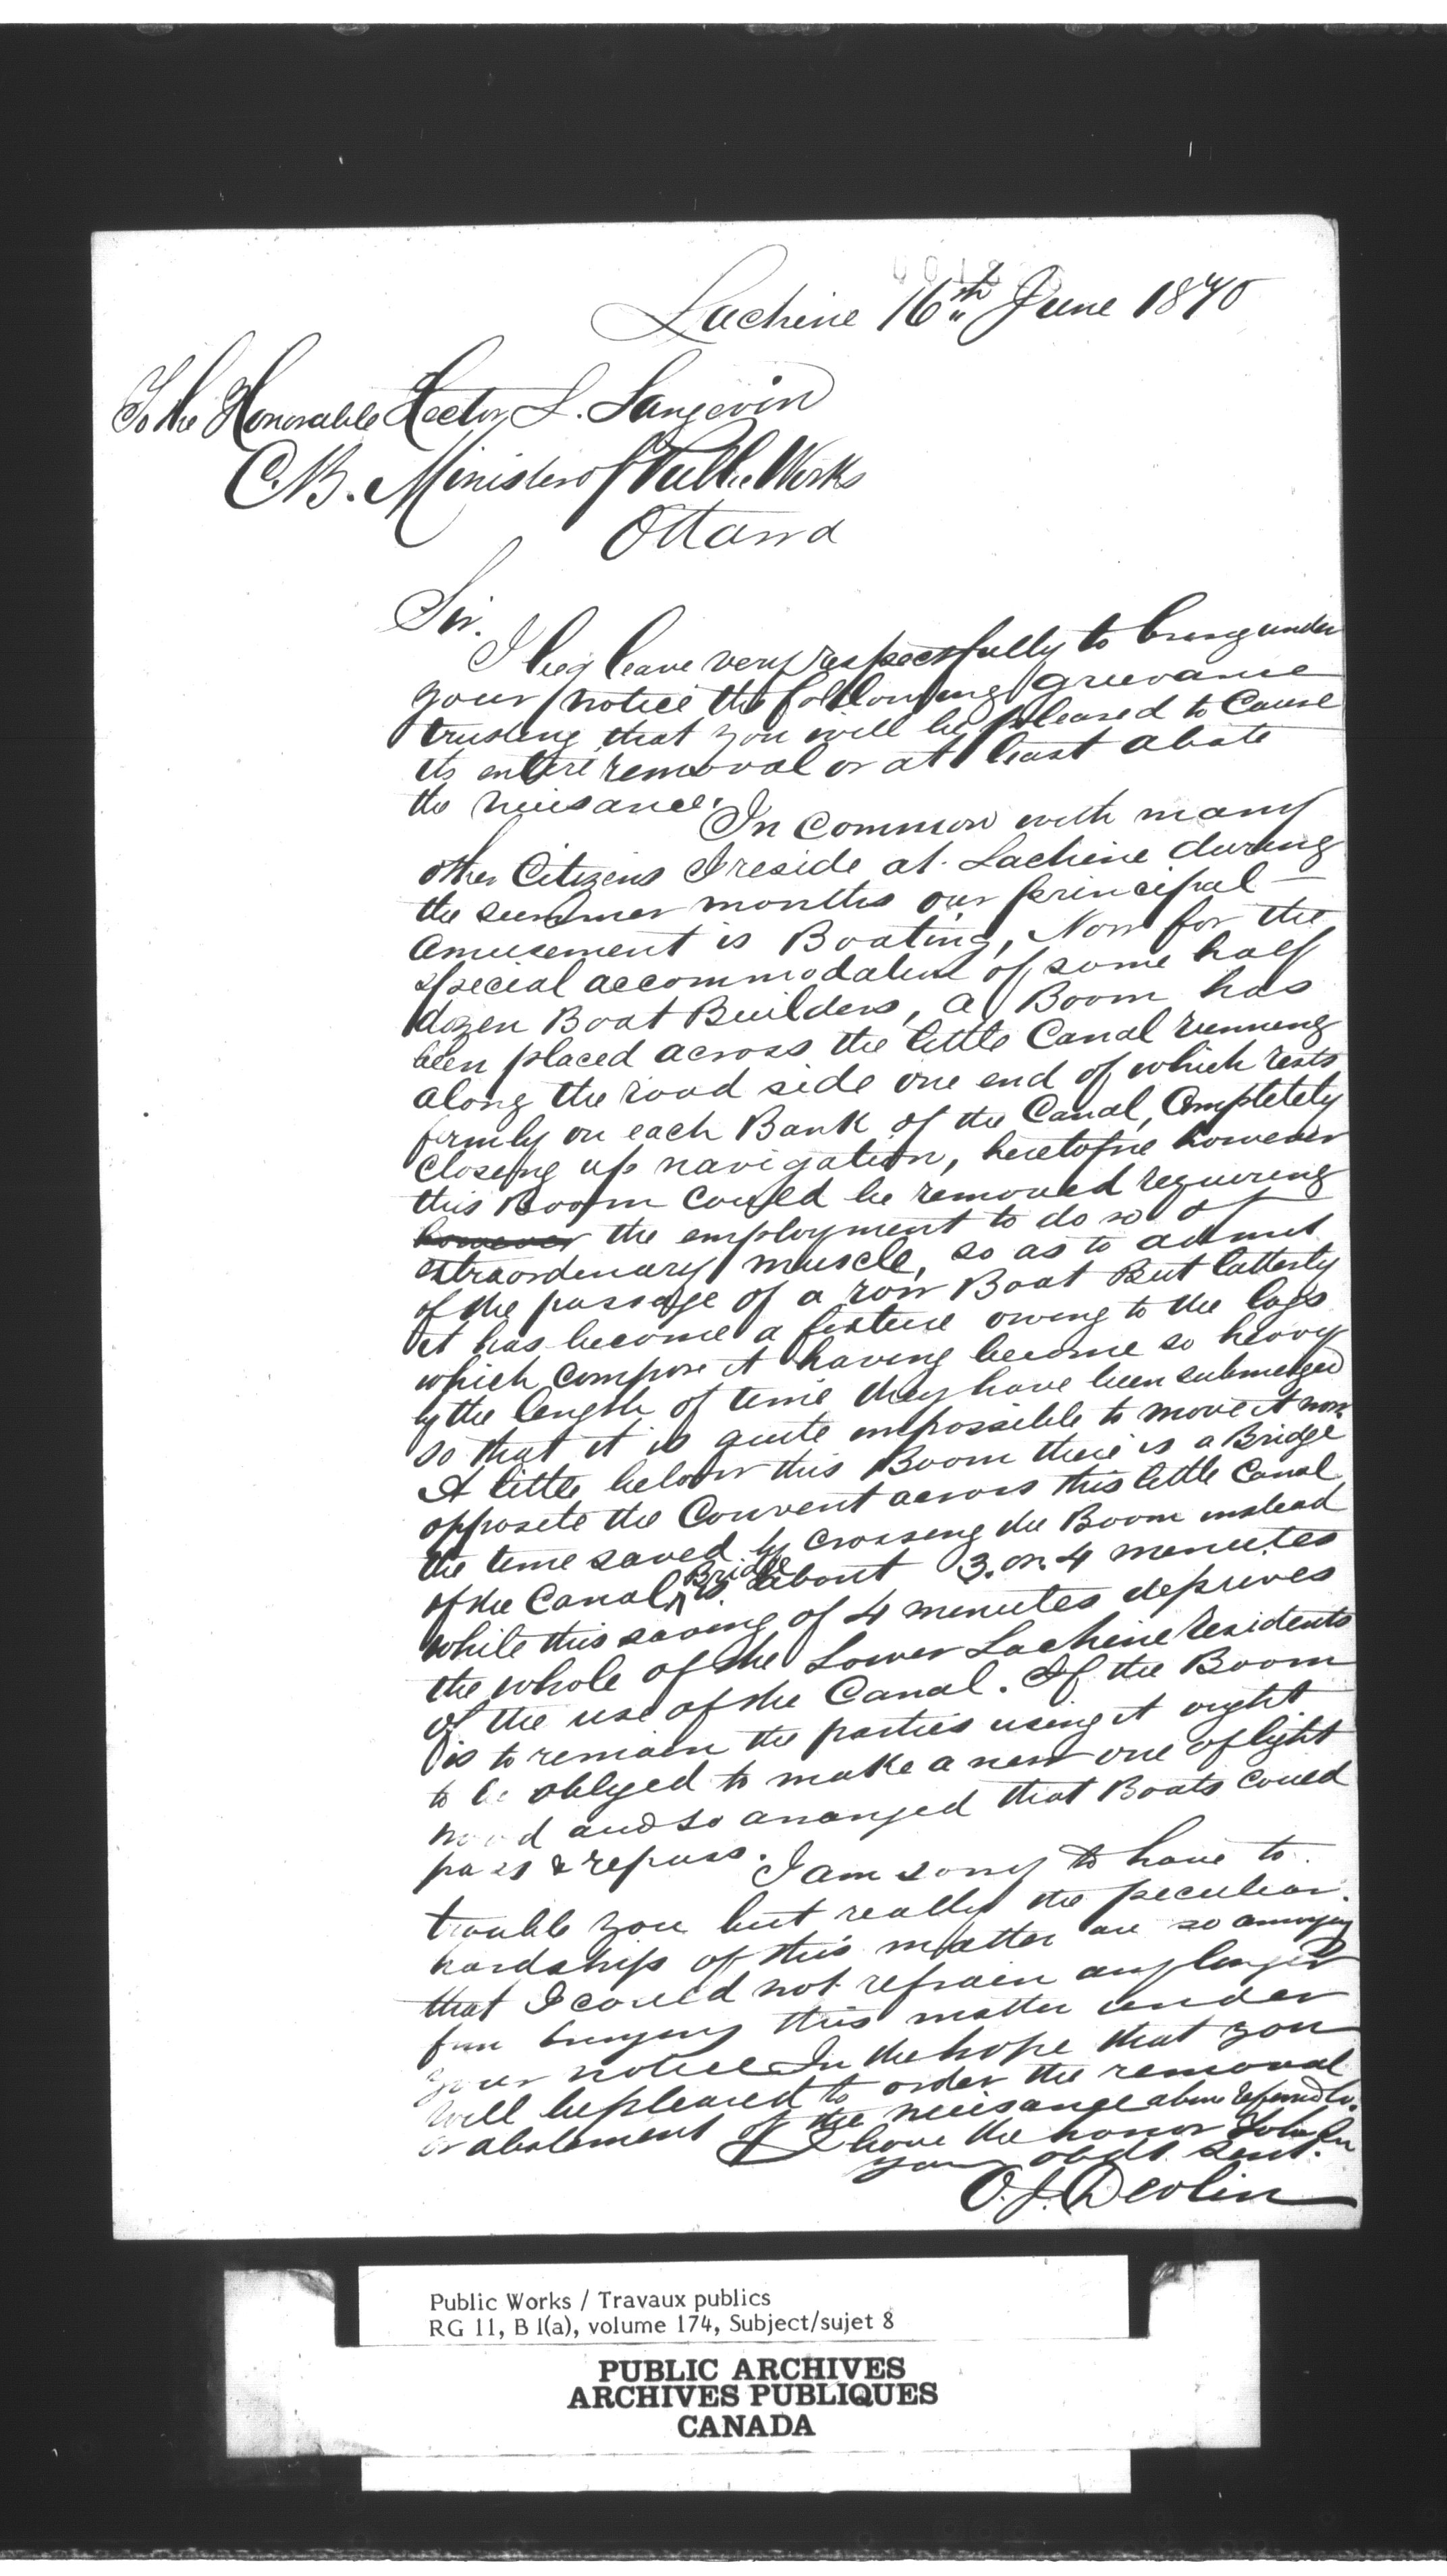 Lachine 16th June 1870
To the Honorable Hector L. Langevin
C.B. Minister of Public Works
Ottawa
Sir.
I beg leave very respectfully to bring under
your notice the following grievance
trusting that you will be pleased to Cause
its entire removal or at least abate
the nuisance.
In Common with many
other Citizens I reside at Lachine during
the summer months our principal
amusement is Boating, Now for the
special accommodation of some half
dozen Boat Builders, a Boom has
been placed across the little Canal running
along the road side one end of which rests
firmly on each Bank of the Canal, Completely
closing up navigation, heretofore however
this Boom could be removed requiring
however the employment to do so of
extraordinary muscle, so as to admit
of the passage of a row Boat But latterly
it has become a fixture owing to the logs
which compose it having become so heavy
by the length of time they have been submerged
so that it is quite impossible to move it now.
A little below this Boom there is a Bridge
opposite the Convent across this little Canal
the time saved by crossing the Boom instead
of the Canal Bridge is about 3. or. 4 minutes
while this saving of 4 minutes deprives
the whole of the Lower Lachine residents
of the use of the Canal. If the Boom
is to remain the parties using it ought
to be obliged to make a new one of light
wood and so arranged that Boats could
pass & repass. I am sorry to have to
trouble you but really the peculiar
hardships of this matter are so annoying
that I could not refrain any longer
from bringing this matter under
your notice In the hope that you
will be pleased to order the removal
or abatement of the nuisance above referred to.
I have the honor to be Sir
your obdt. Servt.
O. J. Devlin
Public Works / Travaux publics
RG 11, B 1(a), volume 174, Subject/sujet 8
PUBLIC ARCHIVES
ARCHIVES PUBLIQUES
CANADA